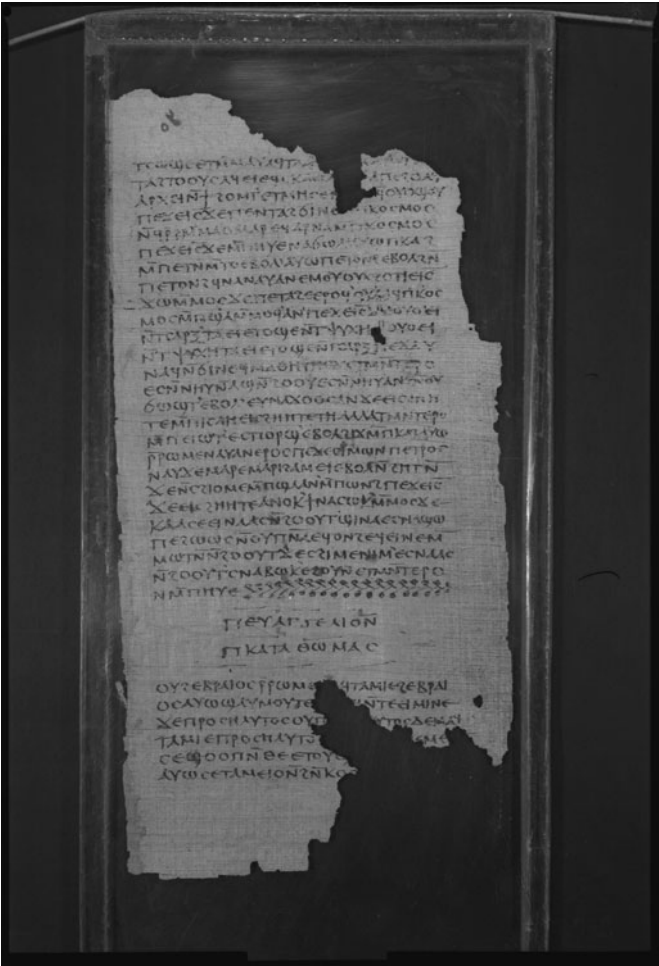 ⲛ̅ⲁ̅
ⲧⲥⲱϣⲉ ⲉⲧⲙ̄ⲙⲁⲩ ⲁϥⲧⲁ
ⲧⲁϩⲧⲟⲟⲩⲥ ⲁϥⲉⲓ ⲉϥⲥⲕⲁⲉⲓ ⲁⲡⲉϩⲟ ⲁϥ
ⲁⲣⲭⲉⲓ ⲛ̄ϯ ϩⲟⲙⲧ ⲉⲧⲙⲏⲥⲉ ϥⲟⲩⲟϣⲟⲩ
ⲡⲉϫⲉ ⲓⲥ ϫⲉ ⲡⲉⲛⲧⲁϩϭⲓⲛⲉ ⲕⲟⲥⲙⲟⲥ
ⲛ̄ϥⲣ̄ ⲣⲙ̄ⲙⲁⲟ ⲙⲁⲣⲉϥⲁⲣⲛⲁ ⲙ̄ⲡⲕⲟⲥⲙⲟⲥ
ⲡⲉϫⲉ ⲓⲥ ϫⲉ ⲙ̄ⲡⲏⲩⲉ ⲛⲁϭⲱⲗ ⲁⲩⲱ ⲡⲕⲁϩ
ⲙ̄ⲡⲉⲧⲛ̄ⲙ̄ⲧⲟ ⲉⲃⲟⲗ ⲁⲩⲱ ⲡⲉⲧⲟⲛϩ ⲉⲃⲟⲗ ϩⲛ̄
ⲡⲉⲧⲟⲛϩ ϥⲛⲁⲛⲁⲩ ⲁⲛ ⲉⲙⲟⲩ ⲟⲩⲭ ϩⲟⲧⲓ ⲉⲓⲥ
ϫⲱ ⲙ̄ⲙⲟⲥ ϫⲉ ⲡⲉⲧⲁϩⲉ ⲉⲣⲟϥ ⲟⲩⲁⲁϥ ⲡⲕⲟⲥ
ⲙⲟⲥ ⲙ̄ⲡϣⲁ ⲙ̄ⲙⲟϥ ⲁⲛ ⲡⲉϫⲉ ⲓⲥ ϫⲉ ⲟⲩⲟⲉⲓ
ⲛ̄ⲧⲥⲁⲣⲝ ⲧⲁⲉⲓ ⲉⲧⲟϣⲉ ⲛ̄ⲧⲯⲩⲭⲏ ⲟⲩⲟⲉⲓ
ⲛ̄ⲧⲯⲩⲭⲏ ⲧⲁⲉⲓ ⲉⲧⲟϣⲉ ⲛ̄ⲧⲥⲁⲣⲝ ⲡⲉϫⲁⲩ
ⲛⲁϥ ⲛ̄ϭⲓ ⲛⲉϥⲙⲁⲑⲏⲧⲏⲥ ϫⲉ ⲧⲙⲛ̄ⲧⲉⲣⲟ
ⲉⲥⲛ̄ⲛⲏⲩ ⲛ̄ⲁϣ ⲛ̄ϩⲟⲟⲩ ⲉⲥⲛ̄ⲛⲏⲩ ⲁⲛ ϩⲛ̄ ⲟⲩ
ϭⲱϣⲧ ⲉⲃⲟⲗ ⲉⲩⲛⲁϫⲟⲟⲥ ⲁⲛ ϫⲉ ⲉⲓⲥ ϩⲏⲏ
ⲧⲉ ⲙ̄ⲡⲓⲥⲁ ⲏ ⲉⲓⲥ ϩⲏⲏⲧⲉ ⲧⲏ ⲁⲗⲗⲁ ⲧⲙⲛ̄ⲧⲉⲣⲟ
ⲙ̄ⲡⲉⲓⲱⲧ ⲉⲥⲡⲟⲣϣ ⲉⲃⲟⲗ ϩⲓϫⲙ̄ ⲡⲕⲁϩ ⲁⲩⲱ
ⲣ̄ⲣⲱⲙⲉ ⲛⲁⲩ ⲁⲛ ⲉⲣⲟⲥ ⲡⲉϫⲉ ⲥⲓⲙⲱⲛ ⲡⲉⲧⲣⲟⲥ
ⲛⲁⲩ ϫⲉ ⲙⲁⲣⲉ ⲙⲁⲣⲓϩⲁⲙ ⲉⲓ ⲉⲃⲟⲗ ⲛ̄ϩⲏⲧⲛ̄
ϫⲉ ⲛ̄ⲥϩⲓⲟⲙⲉ ⲙ̄ⲡϣⲁ ⲁⲛ ⲙ̄ⲡⲱⲛϩ ⲡⲉϫⲉ ⲓⲥ
ϫⲉ ⲉⲓⲥ ϩⲏⲏⲧⲉ ⲁⲛⲟⲕ ϯⲛⲁⲥⲱⲕ ⲙ̄ⲙⲟⲥ ϫⲉ
ⲕⲁⲁⲥ ⲉⲉⲓⲛⲁⲁⲥ ⲛ̄ϩⲟⲟⲩⲧ ϣⲓⲛⲁ ⲉⲥⲛⲁϣⲱ
ⲡⲉ ϩⲱⲱⲥ ⲛ̄ⲟⲩⲡⲛ̄ⲁ ⲉϥⲟⲛϩ ⲉϥⲉⲓⲛⲉ ⲙ̄
ⲙⲱⲧⲛ̄ ⲛ̄ϩⲟⲟⲩⲧ ϫⲉ ⲥϩⲓⲙⲉ ⲛⲓⲙ ⲉⲥⲛⲁⲁⲥ
ⲛ̄ϩⲟⲟⲩⲧ ⲥⲛⲁⲃⲱⲕ ⲉϩⲟⲩⲛ ⲉⲧⲙⲛ̄ⲧⲉⲣⲟ
ⲛⲙ̄ⲡⲏⲩⲉ
ⲡⲉⲩⲁⲅⲅⲉⲗⲓⲟⲛ
ⲡⲕⲁⲧⲁ ⲑⲱⲙⲁⲥ
ⲟⲩϩⲉⲃⲣⲁⲓⲟⲥ ⲣ̄ⲣⲱⲙⲉ ϣⲁϥⲧⲁⲙⲓⲉ ϩⲉⲃⲣⲁⲓ
ⲟⲥ ⲁⲩⲱ ϣⲁⲩⲙⲟⲩⲧⲉ ⲛ̄ⲧⲉⲉⲓⲙⲓⲛⲉ
ϫⲉ ⲡⲣⲟⲥⲏⲗⲩⲧⲟⲥ ⲟⲩⲡ ⲗⲩⲧⲟⲥ ⲇⲉ ⲙⲁϥ
ⲧⲁⲙⲓⲉ ⲡⲣⲟⲥⲏⲗⲩⲧⲟⲥ ⲙⲉⲛ
ⲥⲉϣⲟⲟⲡ ⲛ̄ⲑⲉ ⲉⲧⲟⲩϣ
ⲁⲩⲱ ⲥⲉⲧⲁⲙⲉⲓⲟ ⲛ̄ϩⲛ̄ⲕⲟ